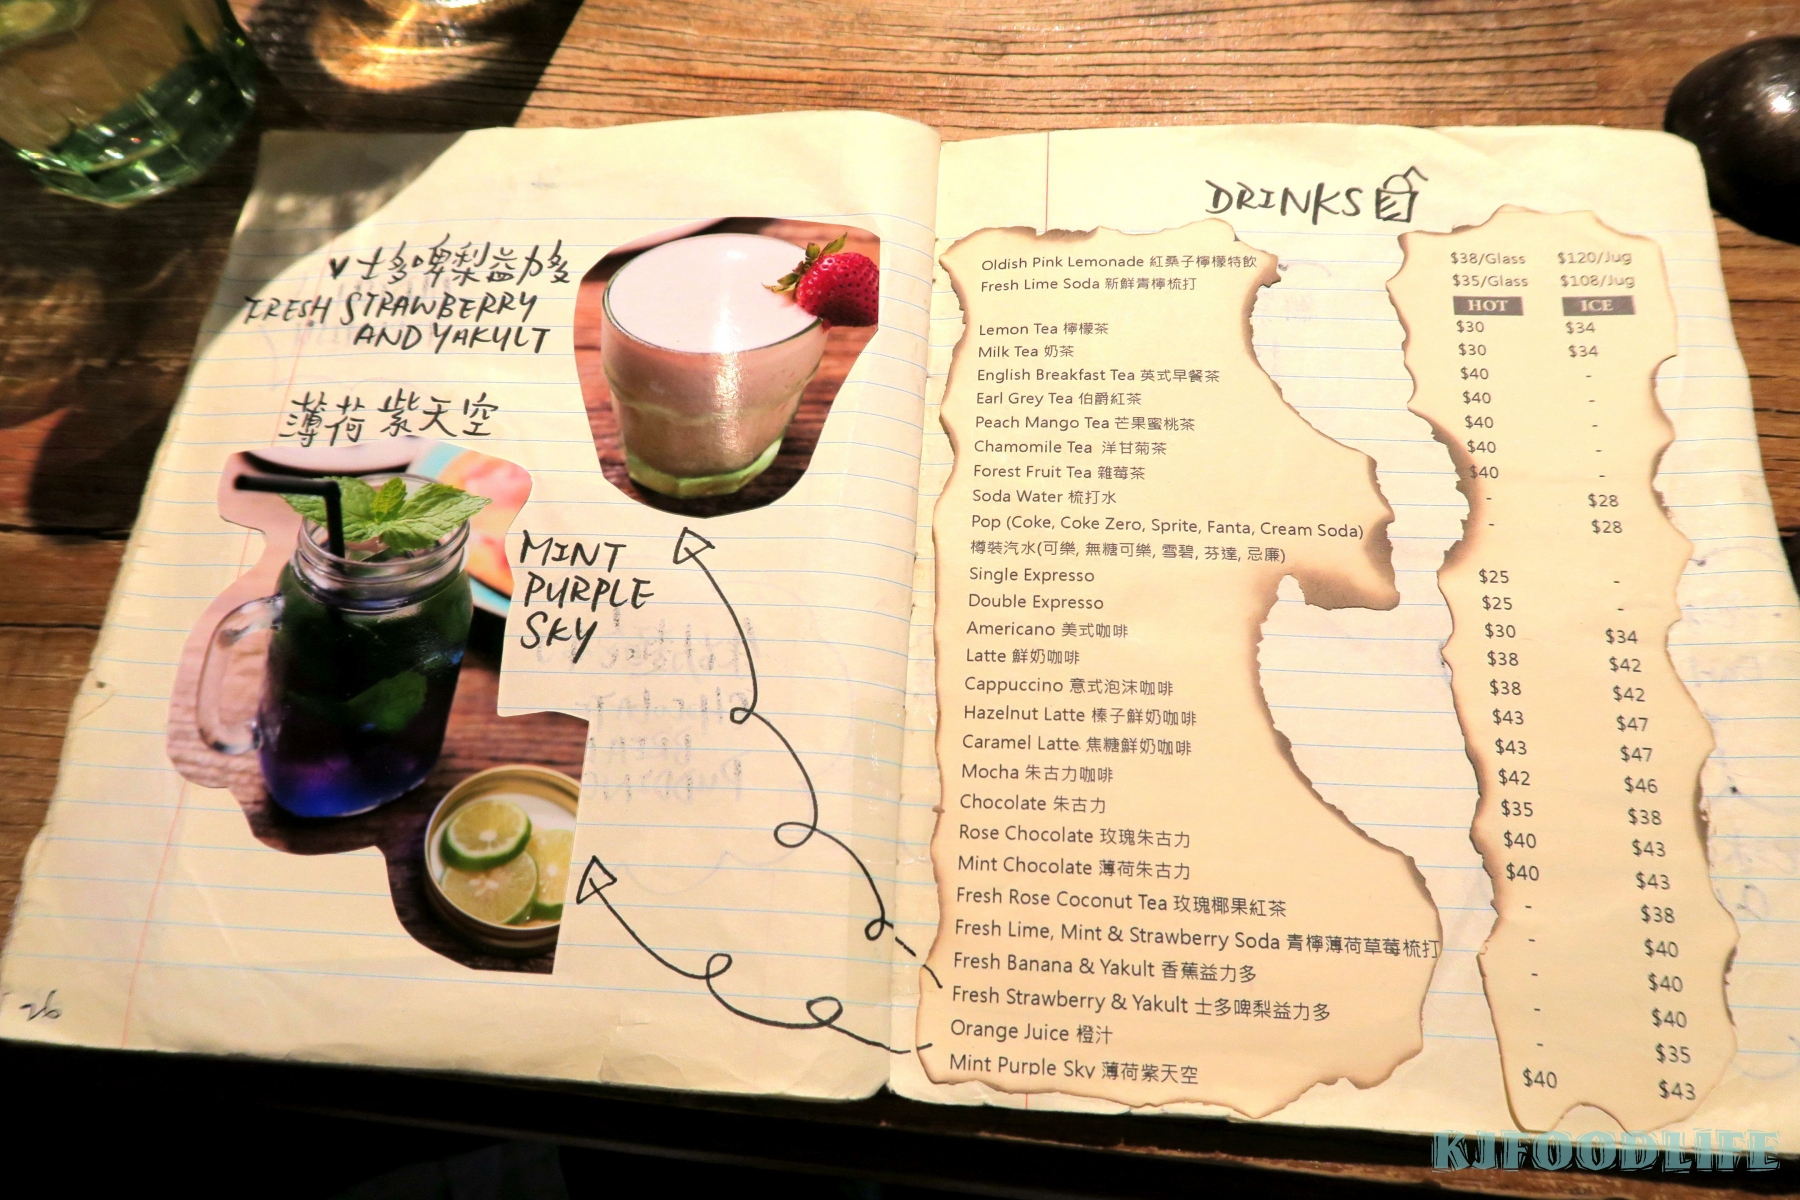 ♥士多啤梨益力多
FRESH STRAWBERRY
AND YAKULT
薄荷紫天空
MINT
PURPLE
SKY
26
DRINKS
Oldish Pink Lemonade 紅桑子檸檬特飲 $38/Glass $120/Jug
Fresh Lime Soda 新鮮青檸梳打 $35/Glass $108/Jug
HOT ICE
Lemon Tea 檸檬茶 $30 $34
Milk Tea 奶茶 $30 $34
English Breakfast Tea 英式早餐茶 $40 -
Earl Grey Tea 伯爵紅茶 $40 -
Peach Mango Tea 芒果蜜桃茶 $40 -
Chamomile Tea 洋甘菊茶 $40 -
Forest Fruit Tea 雜莓茶 $40 -
Soda Water 梳打水 - $28
Pop (Coke, Coke Zero, Sprite, Fanta, Cream Soda) - $28
樽裝汽水(可樂, 無糖可樂, 雪碧, 芬達, 忌廉)
Single Expresso $25 -
Double Expresso $25 -
Americano 美式咖啡 $30 $34
Latte 鮮奶咖啡 $38 $42
Cappuccino 意式泡沫咖啡 $38 $42
Hazelnut Latte 榛子鮮奶咖啡 $43 $47
Caramel Latte 焦糖鮮奶咖啡 $43 $47
Mocha 朱古力咖啡 $42 $46
Chocolate 朱古力 $35 $38
Rose Chocolate 玫瑰朱古力 $40 $43
Mint Chocolate 薄荷朱古力 $40 $43
Fresh Rose Coconut Tea 玫瑰椰果紅茶 - $38
Fresh Lime, Mint & Strawberry Soda 青檸薄荷草莓梳打 - $40
Fresh Banana & Yakult 香蕉益力多 - $40
Fresh Strawberry & Yakult 士多啤梨益力多 - $40
Orange Juice 橙汁 - $35
Mint Purple Sky 薄荷紫天空 $40 $43
KJFOODLIFE